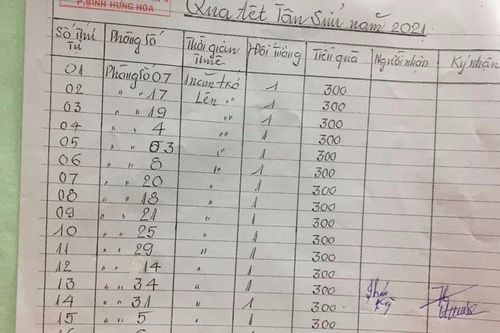 P.BÌNH HƯNG HÒA
Quà tết Tân Sửu năm 2021
Số Thứ Tự Phòng Số Thời gian Thuê Đối Tượng Tiền quà Người nhận Ký nhận
01 Phòng Số 07 1 năm trở 1 300
02 " " 17 Lên " 1 300
03 " " 19 " 1 300
04 " " 4 " 1 300
05 " " 63 " 1 300
06 " " 8 " 1 300
07 " " 20 " 1 300
08 " " 18 " 1 300
09 " " 21 " 1 300
10 " " 25 " 1 300
11 " " 29 " 1 300
12 " " 14 " 1 300
13 " " 34 " 1 300
14 " " 31 " 1 300
15 " " 5 " 1 300